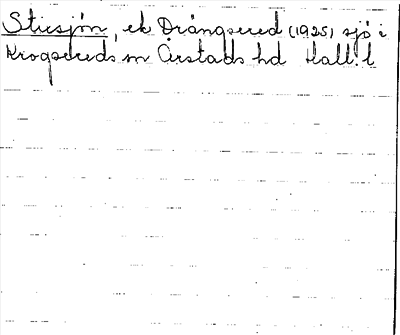 Stiesjön, ek Drängsered (1925) sjö i
Krogsereds sn Årstads hd Hall. l